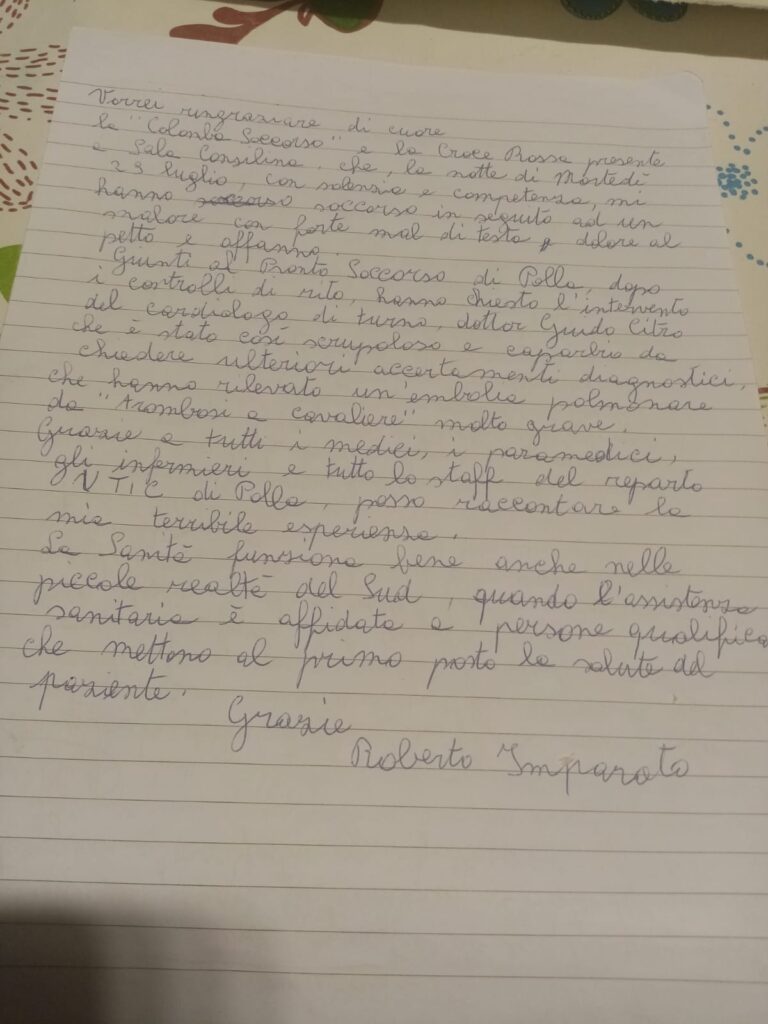 Vorrei ringraziare di cuore
la "Colomba Soccorso" e la Croce Rossa presente
a Sala Consilina che, la notte di Martedì
23 luglio, con solenzia e competenza, mi
hanno soccorso in seguito ad un
malore con forte mal di testa, dolore al
petto e affanno.
Giunti al Pronto Soccorso di Polla, dopo
i controlli di rito, hanno chiesto l'intervento
del cardiologo di turno, dottor Guido Citro
che è stato così scrupoloso e caparbio da
chiedere ulteriori accertamenti diagnostici,
che hanno rilevato un'embolia polmonare
da "Trombosi a cavaliere" molto grave.
Grazie a tutti i medici, i paramedici,
gli infermieri e tutto lo staff del reparto
UTIC di Polla, posso raccontare la
mia terribile esperienza.
La Sanità funziona bene anche nelle
piccole realtà del Sud, quando l'assistenza
sanitaria è affidata a persone qualifica
che mettono al primo posto la salute del
paziente.
Grazie
Roberto Imparato